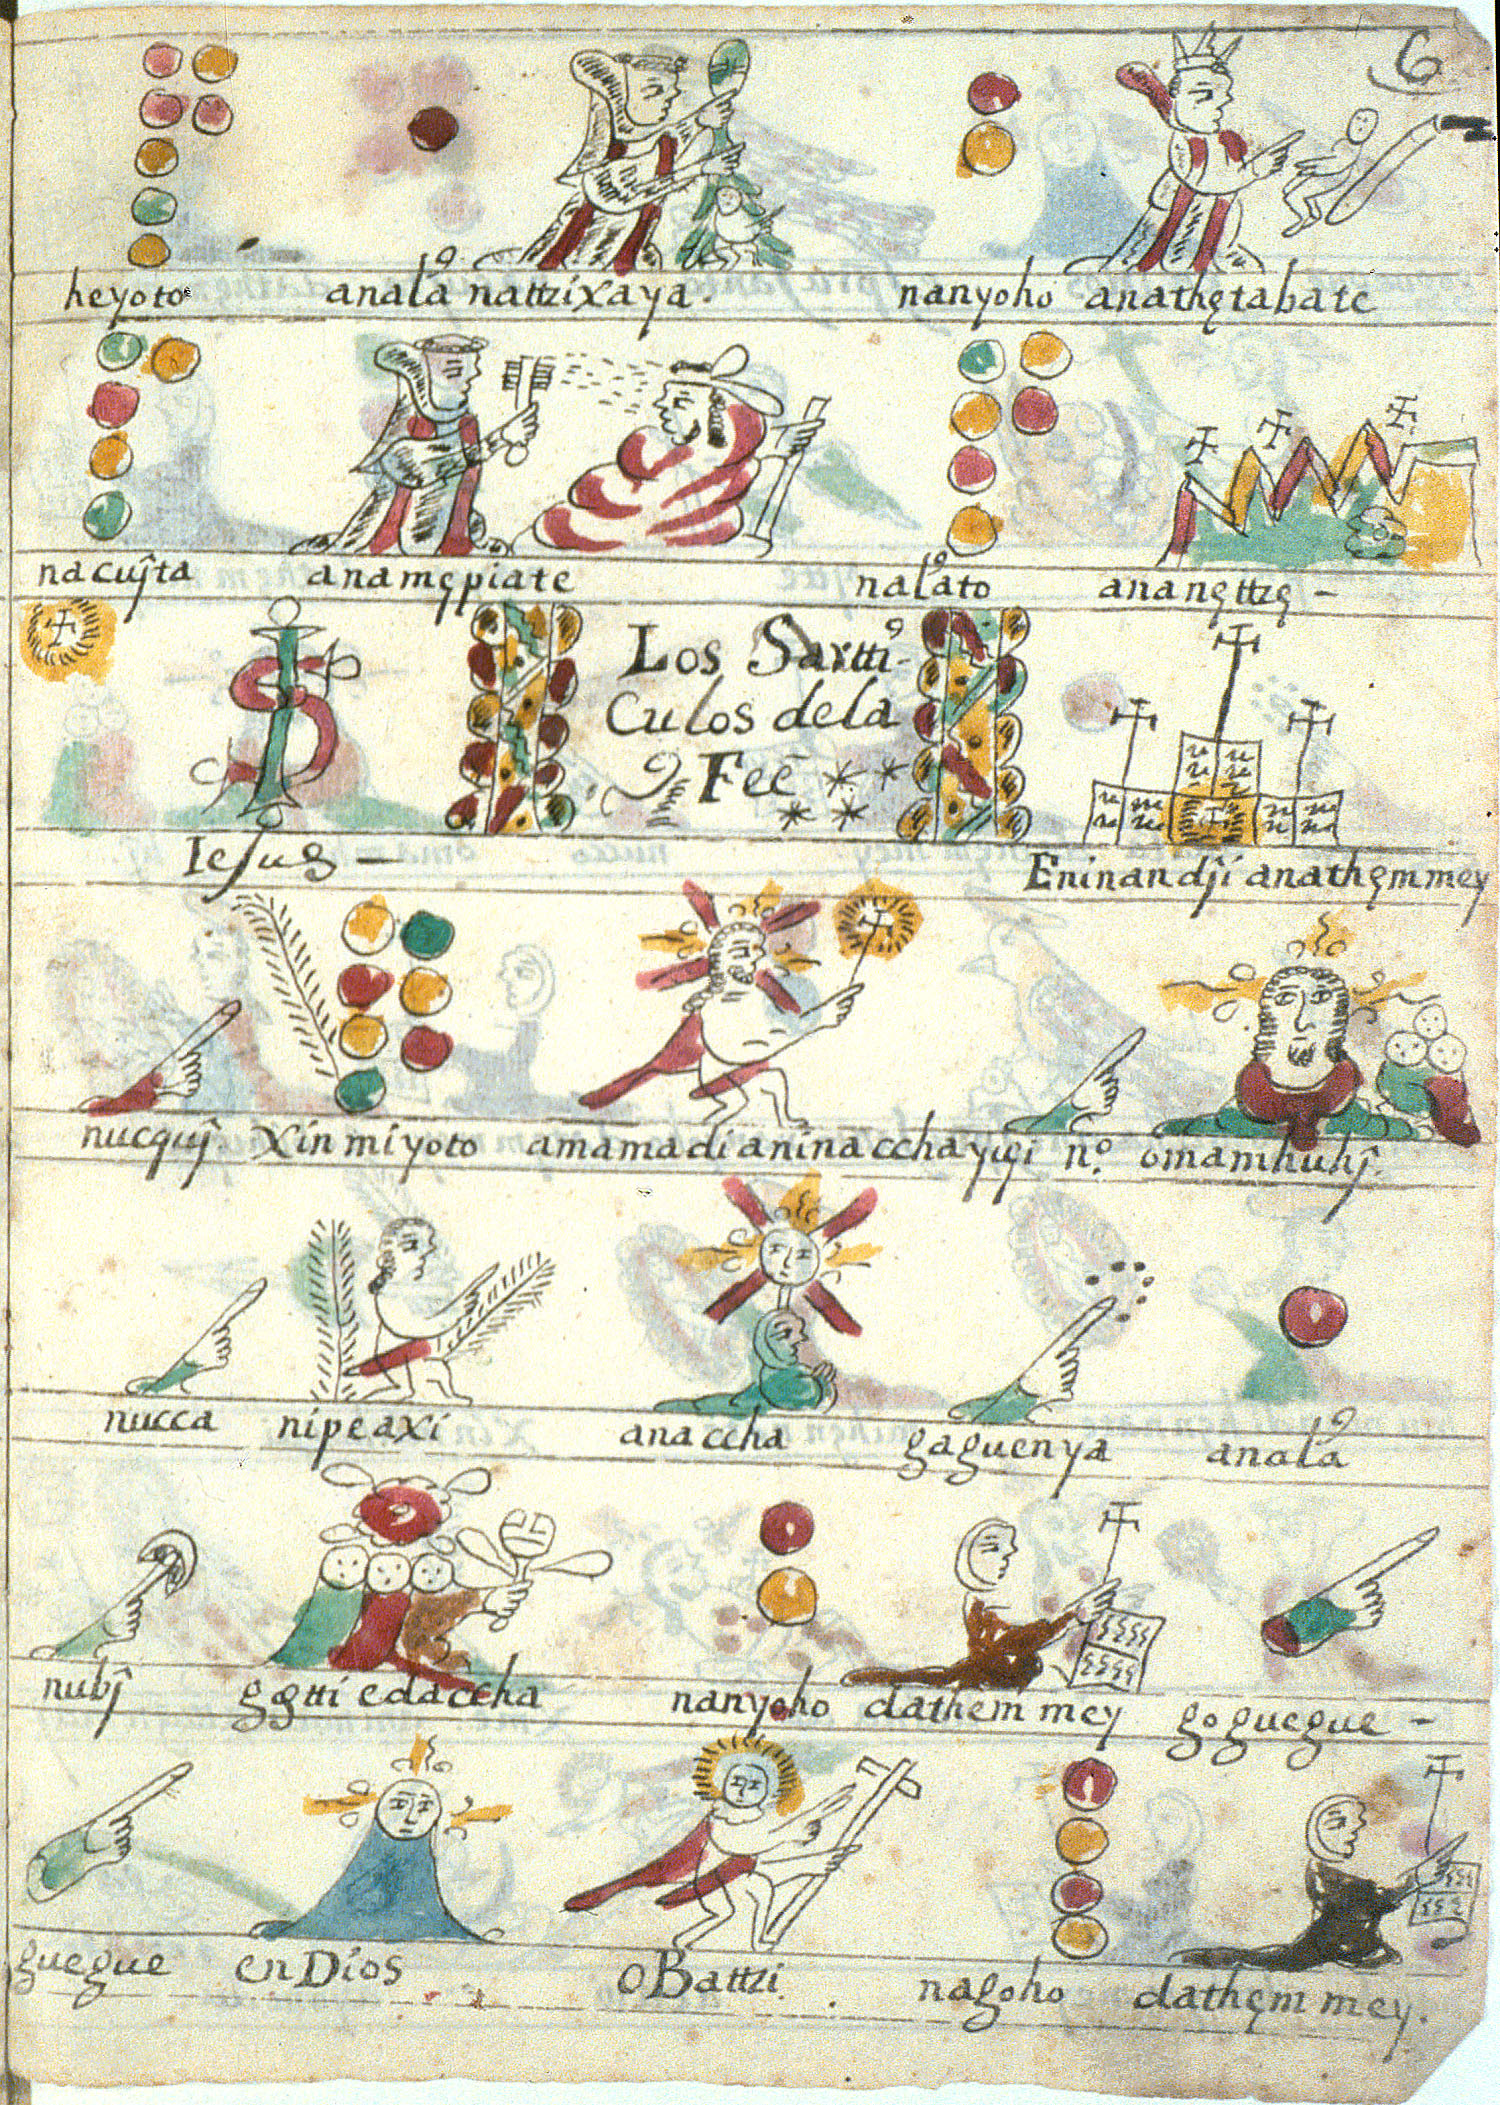 6
heyoto anala° nattzixaya. nanyoho anathętabate
nacuĵta anamępiate nala°to ananęttzę -
Los Sartti°-
Culos dela
Feé
Iesus - Eninandĵi anathęmmey
nucquĵ Xin miyoto amamadianinacchayįçi n°. omamhuhĵ.
nucca nipeaxi anaccha gaguenya anala°
nubĵ gǫtti edaccha nanyoho dathemmey goguegue -
guegue en Dios o Battzi. nagoho dathęmmey.